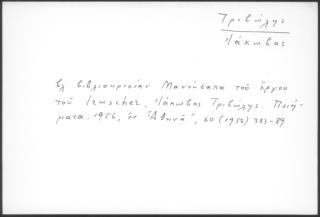 Τριβώλης
Ἰάκωβος
βλ. βιβλιοκρισίαν Μανούσακα τοῦ ἔργου
τοῦ Irmscher, Ἰάκωβος Τριβώλης. Ποιή-
ματα. 1956, ἐν "Ἀθηνᾶ", 60 (1956) 383-89